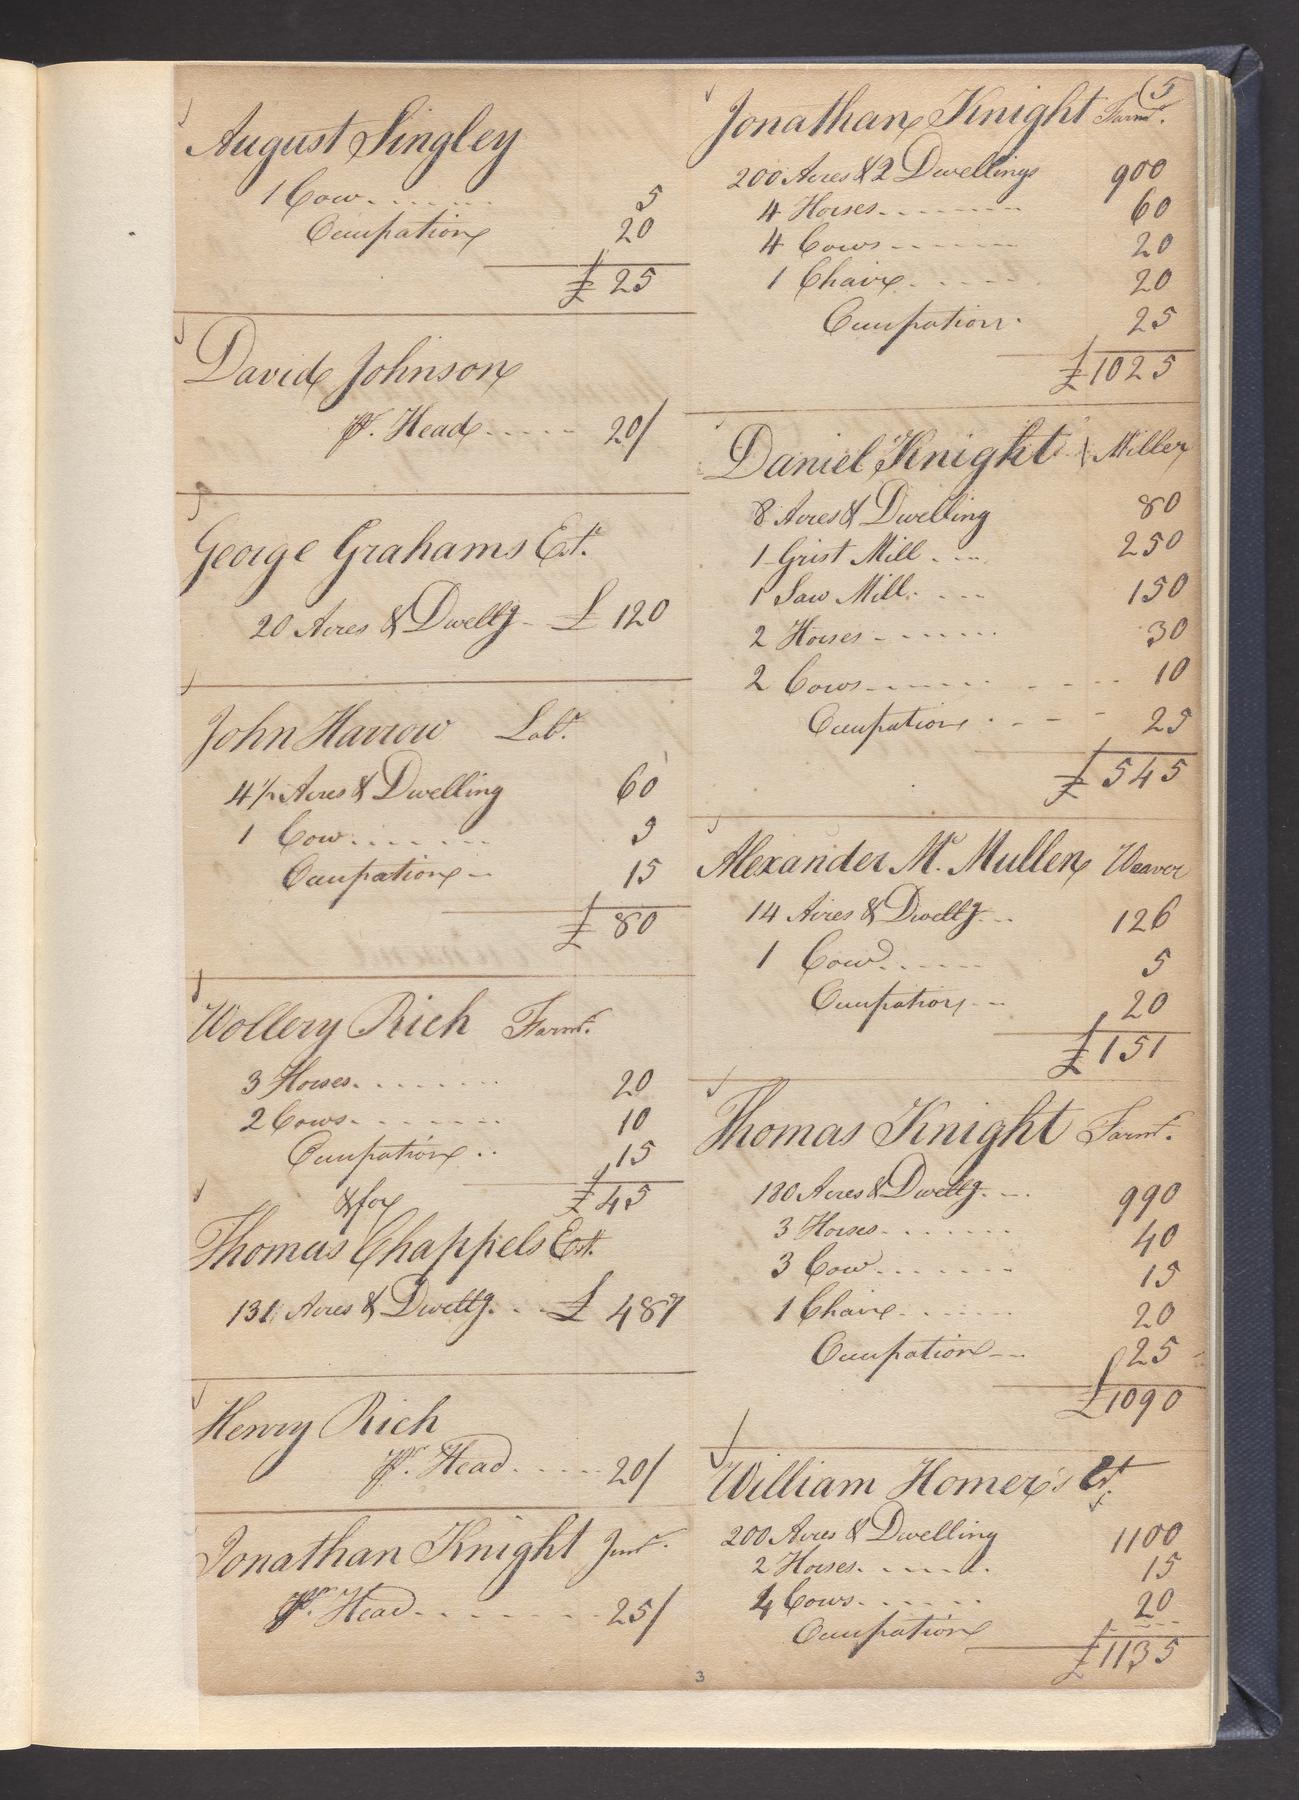 August Singley
1 Cow 5
Occupation 20
£ 25
David Johnson
Pr. Head 20/
George Grahams Est.
20 Acres & Dwellg £ 120
John Harrow Labr.
4½ Acres & Dwelling 60
1 Cow 5
Occupation 15
£ 80
Wollery Rich Farmr.
3 Horses 20
2 Cows 10
Occupation 15
£ 45
& for
Thomas Chappels Est.
131 Acres & Dwellg. £ 487
Henry Rich
Pr. Head 20/
Jonathan Knight Junr.
Pr. Head 25/
(5
Jonathan Knight Farmr.
200 Acres & 2 Dwellings 900
4 Horses 60
4 Cows 20
1 Chair 20
Occupation 25
£ 1025
Daniel Knight Miller
8 Acres & Dwelling 80
1 Grist Mill 250
1 Saw Mill 150
2 Horses 30
2 Cows 10
Occupation 25
£ 545
Alexander Mc. Mullen Weaver
14 Acres & Dwellg 126
1 Cow 5
Occupation 20
£ 151
Thomas Knight Farmr.
180 Acres & Dwellg. 990
3 Horses 40
3 Cow 15
1 Chair 20
Occupation 25
£ 1090
William Homer's Est.
200 Acres & Dwelling 1100
2 Horses 15
4 Cows 20
Occupation
£ 1135
3